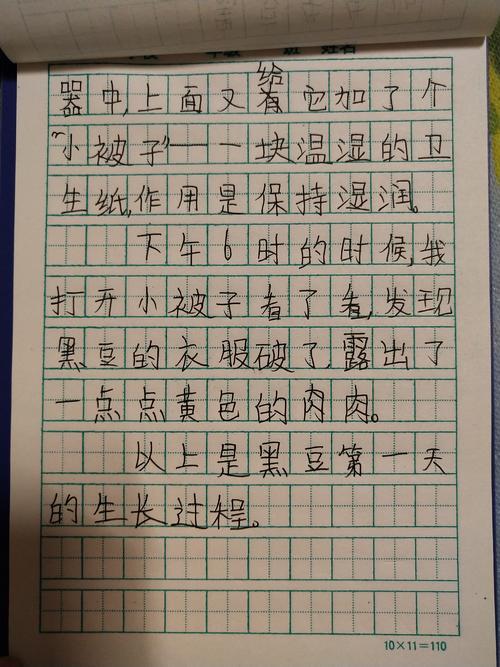 班 姓名
器中,上面又给它加了个
“小被子”——一块温湿的卫
生纸,作用是保持湿润。
下午6时的时候,我
打开小被子看了看,发现
黑豆的衣服破了,露出了
一点点黄色的肉肉。
以上是黑豆第一天
的生长过程。
10×11=110